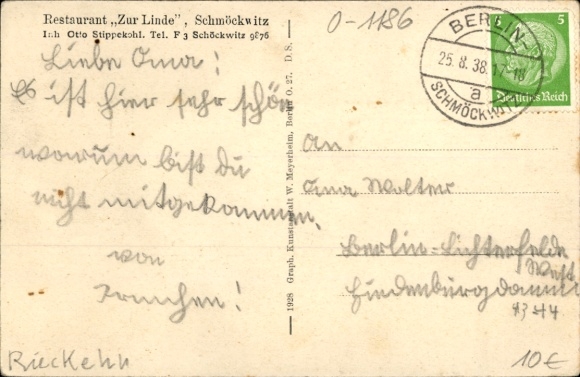 Restaurant „Zur Linde", Schmöckwitz
Inh Otto Stippekohl. Tel. F 3 Schöckwitz 9876
0-1186
BERLIN-
25.8.38.17-18
a
SCHMÖCKWITZ
5
Deutsches Reich
Liebe Oma!
Es ist hier sehr schön
warum bist du
nicht mitgekommen.
von
1928 Graph. Kunstanstalt W. Meyerheim, Berlin O. 27. D.S.
An
Oma Wolter
Berlin-Lichterfelde
West
10€